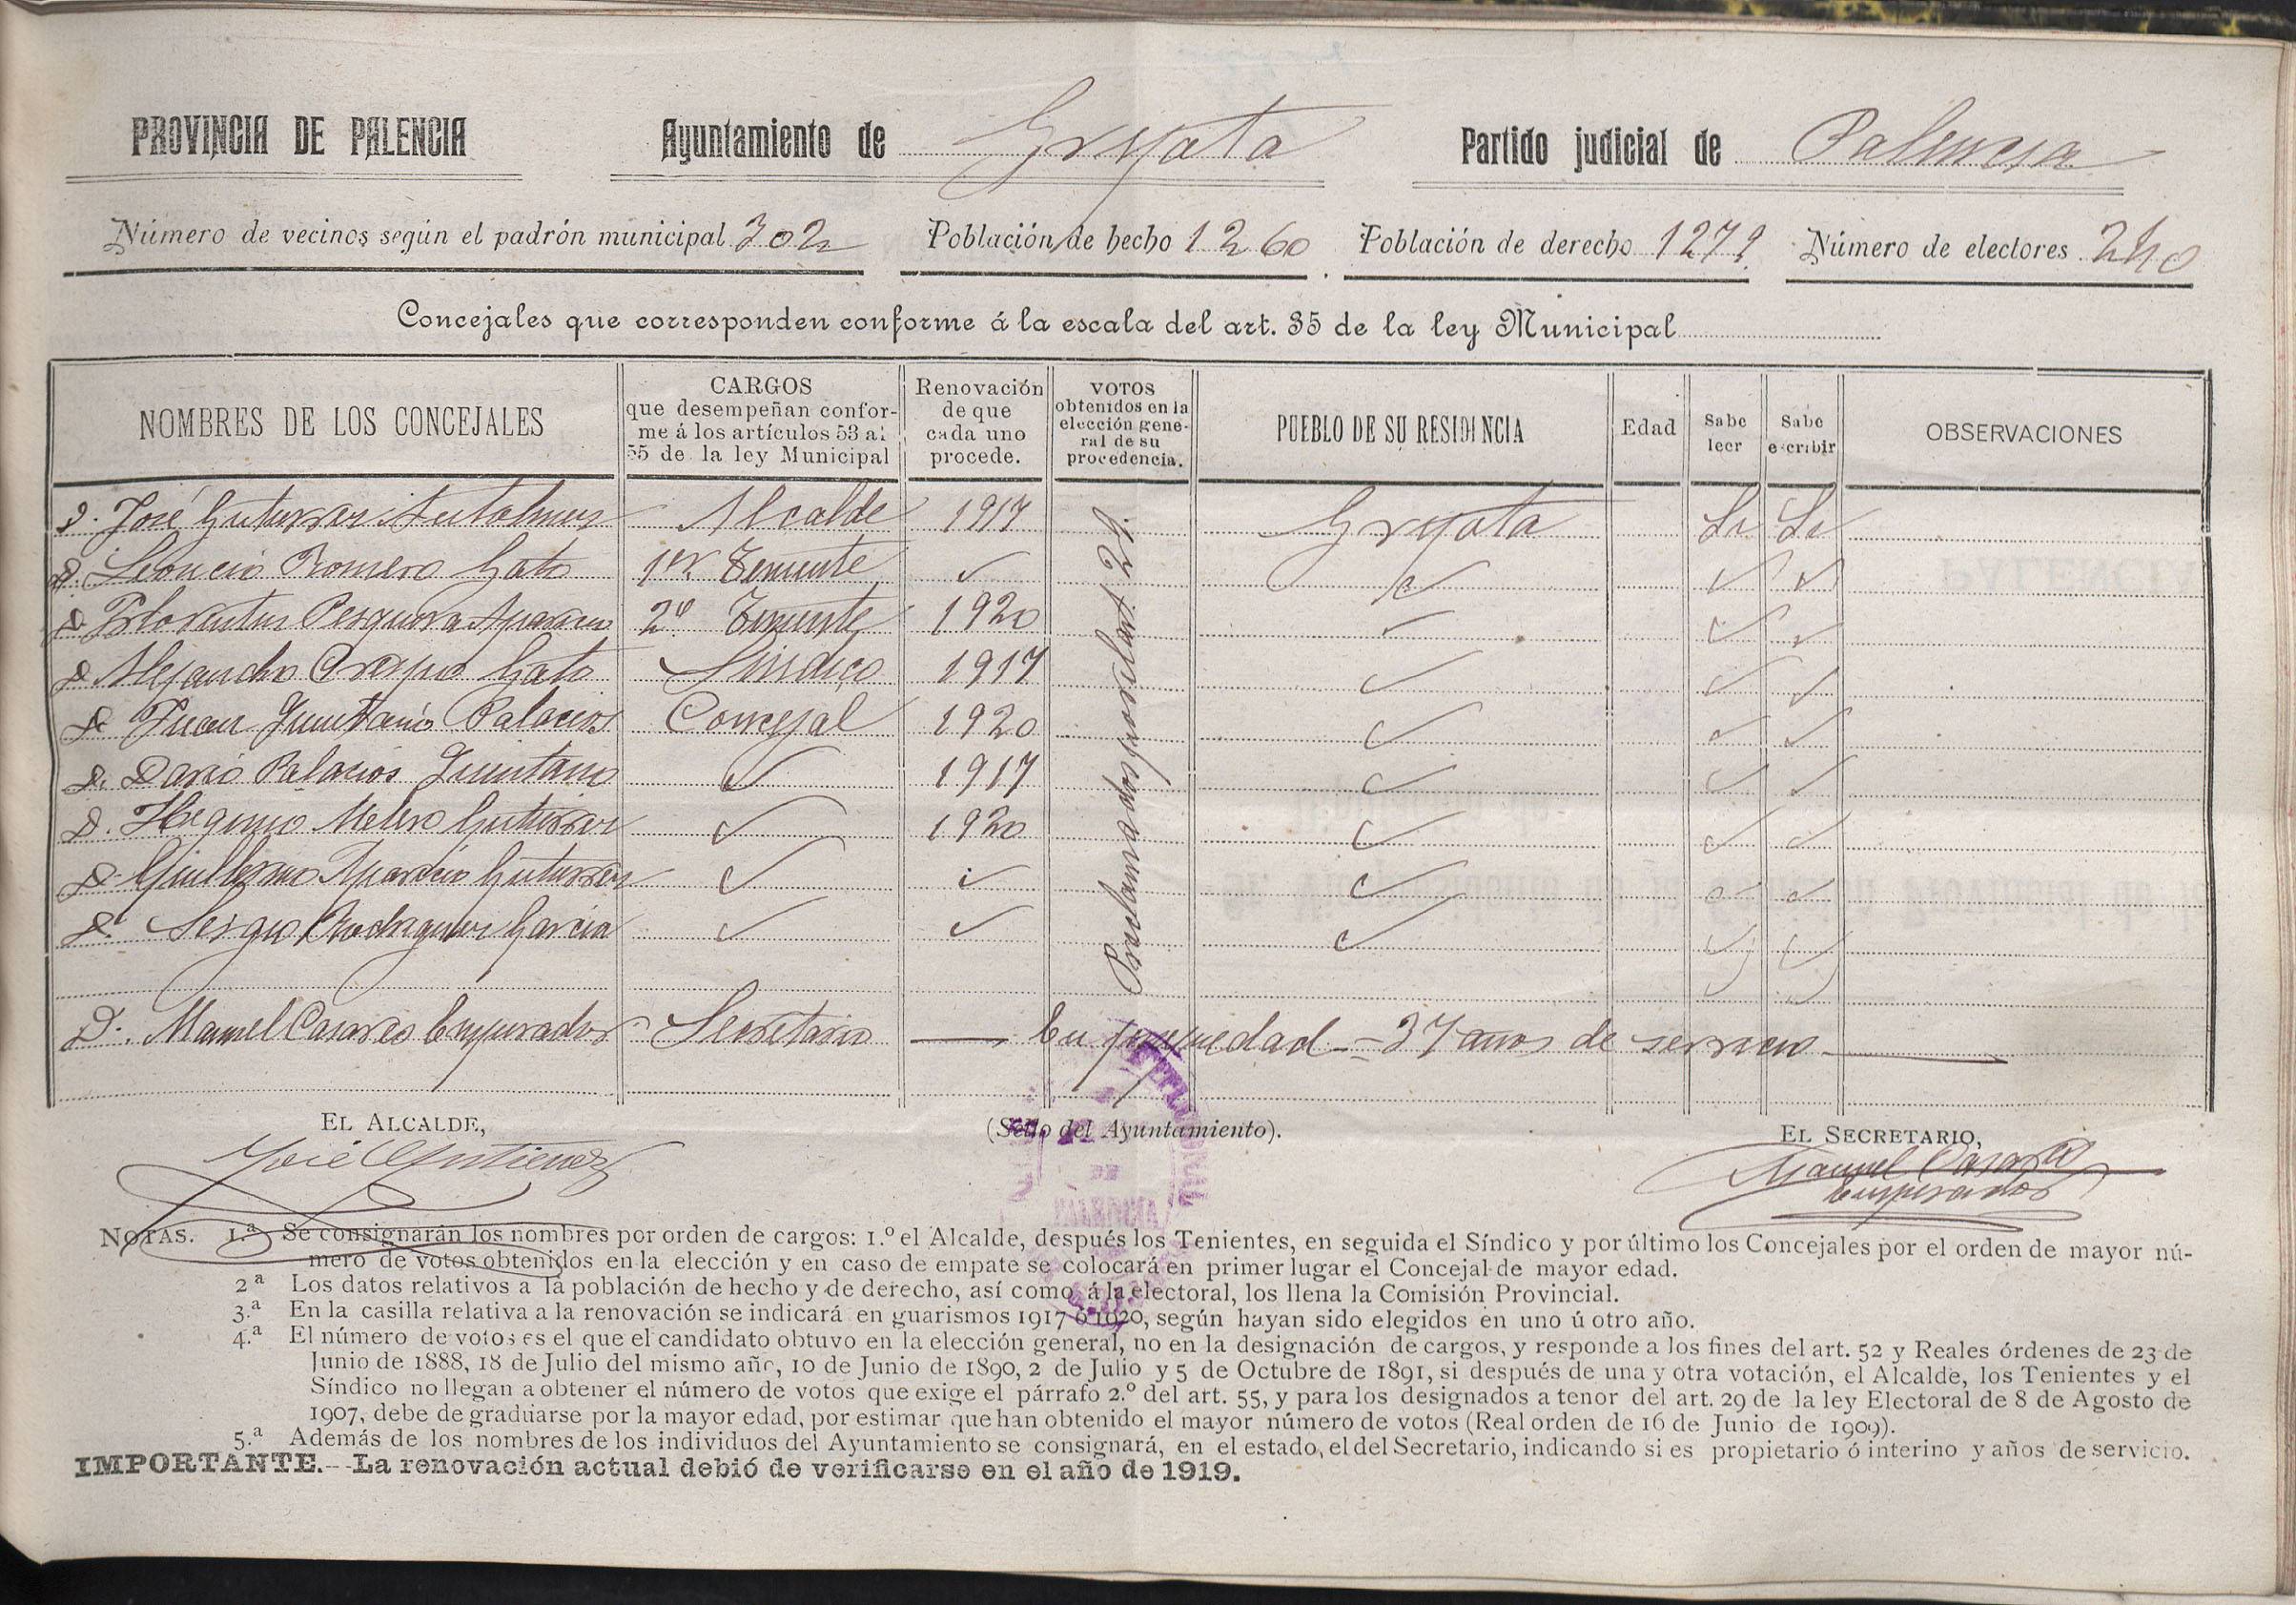 PROVINCIA DE PALENCIA Ayuntamiento de Grijota Partido judicial de Palencia
Número de vecinos según el padrón municipal 302 Población de hecho 1260 Población de derecho 1279 Número de electores 240
Concejales que corresponden conforme á la escala del art. 35 de la ley Municipal
NOMBRES DE LOS CONCEJALES
CARGOS
que desempeñan confor-
me á los artículos 53 al
55 de la ley Municipal
Renovación
de que
cada uno
procede.
VOTOS
obtenidos en la
elección gene-
ral de su
procedencia.
PUEBLO DE SU RESIDENCIA
Edad
Sabe
leer
Sabe
escribir
OBSERVACIONES
D. José Gutierrez Antolinez Alcalde 1917 Grijota Si Si
D. Leoncio Romero Gato 1er Teniente
D. Florentin Pesquera Aparicio 2º Teniente 1920
D. Alejandro Crespo Gato Sindico 1917
D. Juan Quintano Palacios Concejal 1920
D. Dario Palacios Quintano 1917
D. Heginio Melero Gutierrez 1920
D. Guillermo Aparicio Gutierrez
D. Sergio Rodriguez Garcia
Proclamados por el art 29.
D. Manuel Casares Emperador Secretario En propiedad = 37 años de servicio
EL ALCALDE,
José Gutierrez
(Sello del Ayuntamiento).
EL SECRETARIO,
Manuel Casares
Emperador
DE
PALENCIA
NOTAS. 1.ª Se consignarán los nombres por orden de cargos: 1.º el Alcalde, después los Tenientes, en seguida el Síndico y por último los Concejales por el orden de mayor nú-
mero de votos obtenidos en la elección y en caso de empate se colocará en primer lugar el Concejal de mayor edad.
2ª Los datos relativos a la población de hecho y de derecho, así como á la electoral, los llena la Comisión Provincial.
3.ª En la casilla relativa a la renovación se indicará en guarismos 1917 ó 1920, según hayan sido elegidos en uno ú otro año.
4.ª El número de votos es el que el candidato obtuvo en la elección general, no en la designación de cargos, y responde a los fines del art. 52 y Reales órdenes de 23 de
Junio de 1888, 18 de Julio del mismo año, 10 de Junio de 1890, 2 de Julio y 5 de Octubre de 1891, si después de una y otra votación, el Alcalde, los Tenientes y el
Síndico no llegan a obtener el número de votos que exige el párrafo 2.º del art. 55, y para los designados a tenor del art. 29 de la ley Electoral de 8 de Agosto de
1907, debe de graduarse por la mayor edad, por estimar que han obtenido el mayor número de votos (Real orden de 16 de Junio de 1909).
5.ª Además de los nombres de los individuos del Ayuntamiento se consignará, en el estado, el del Secretario, indicando si es propietario ó interino y años de servicio.
IMPORTANTE.--La renovación actual debió de verificarse en el año de 1919.